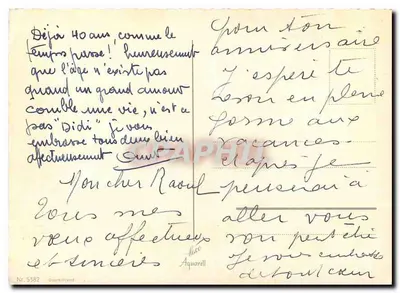 Déjà 40 ans, comme le
temps passe ! heureusement
que l'âge n'existe pas
quand un grand amour
comble une vie, n'est ce
pas "Didi" je vous
embrasse tous deux bien
affectueusement
Mon cher Raoul
Tous mes
vœux affectueux
et sincères
pour ton
anniversaire
J'espère te
revoir en pleine
forme aux
vacances.
Après je
penserai à
aller vous
voir peut être
Je vous embrasse
de tout cœur
Mes
Aquarells
Nr. 5582